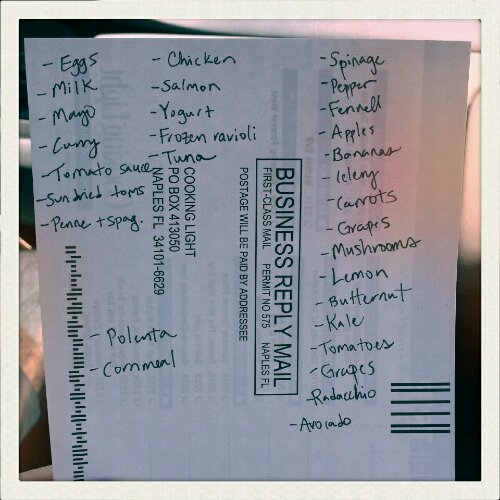 - Eggs
- Milk
- Mayo
- Curry
- Tomato sauce
- Sundried toms
- Penne + spag.
- Polenta
- Cornmeal
- Chicken
- Salmon
- Yogurt
- Frozen ravioli
- Tuna
- Spinage
- Pepper
- Fennell
- Apples
- Bananas
- Celery
- Carrots
- Grapes
- Mushrooms
- Lemon
- Butternut
- Kale
- Tomatoes
- Grapes
- Radacchio
- Avocado
BUSINESS REPLY MAIL
FIRST-CLASS MAIL PERMIT NO 575 NAPLES FL
POSTAGE WILL BE PAID BY ADDRESSEE
COOKING LIGHT
PO BOX 413050
NAPLES FL 34101-6629